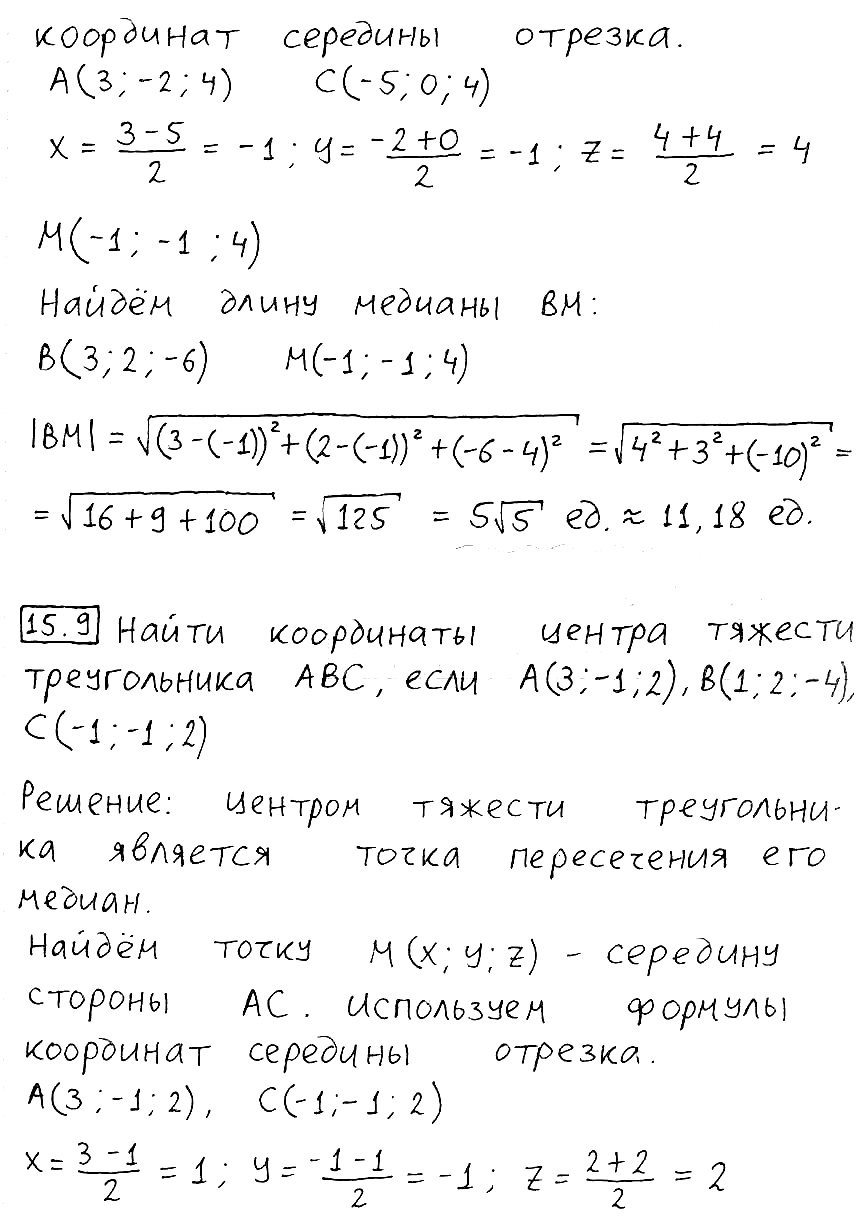 координат середины отрезка.
A(3; -2; 4) C(-5; 0; 4)
x = (3-5)/2 = -1; y = (-2+0)/2 = -1; z = (4+4)/2 = 4
M(-1; -1; 4)
Найдём длину медианы BM:
B(3; 2; -6) M(-1; -1; 4)
|BM| = √((3-(-1))²+(2-(-1))²+(-6-4)²) = √(4²+3²+(-10)²) =
= √(16+9+100) = √125 = 5√5 ед. ≈ 11,18 ед.
15.9 Найти координаты центра тяжести
треугольника ABC, если A(3; -1; 2), B(1; 2; -4),
C(-1; -1; 2)
Решение: центром тяжести треугольни-
ка является точка пересечения его
медиан.
Найдём точку M(x; y; z) - середину
стороны AC. Используем формулы
координат середины отрезка.
A(3; -1; 2), C(-1; -1; 2)
x = (3-1)/2 = 1; y = (-1-1)/2 = -1; z = (2+2)/2 = 2